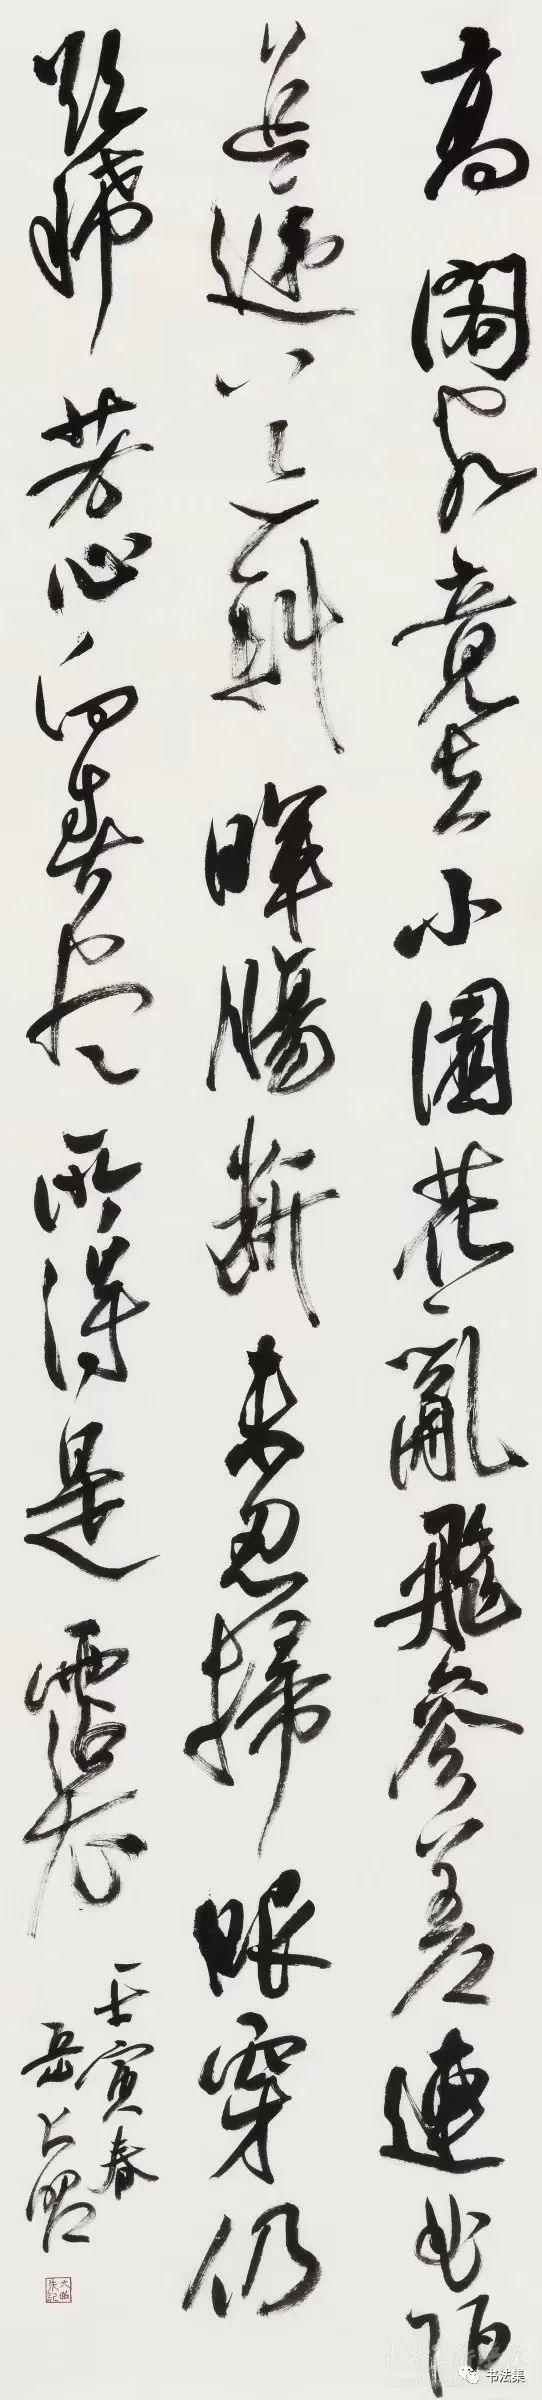 高閣客竟去小園花亂飛參差連曲陌
迢遞送斜暉腸斷未忍掃眼穿仍
欲稀芳心向春盡所得是霑衣
壬寅春
书法集